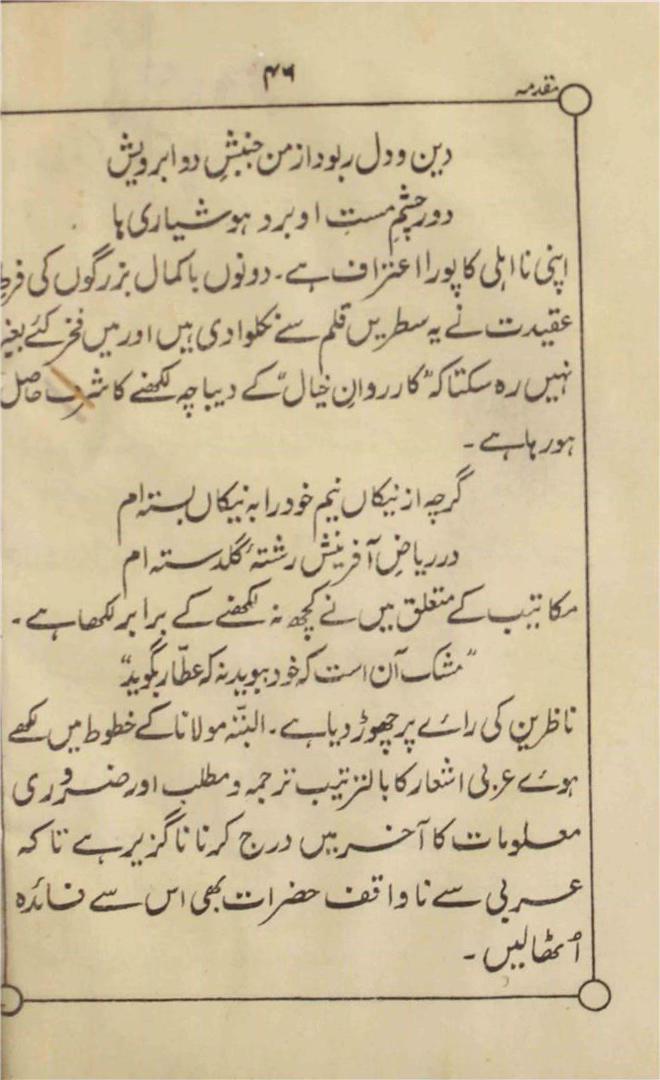 مقدمہ
۴۶
دین و دل ربود از من جنبشِ دو ابرویش
دور چشمِ مستِ او برد ہوشیاری ہا
اپنی نااہلی کا پورا اعتراف ہے۔ دونوں باکمال بزرگوں کی فرط
عقیدت نے یہ سطریں قلم سے نکلوا دی ہیں اور میں فخر کئے بغیر
نہیں رہ سکتا کہ "کاروانِ خیال" کے دیباچہ لکھنے کا شرف حاصل
ہو رہا ہے۔
گرچہ از نیکاں نیم خود را بہ نیکاں بستہ ام
در ریاضِ آفرینش رشتۂ گلدستہ ام
مکاتیب کے متعلق میں نے کچھ نہ لکھنے کے برابر لکھا ہے۔
"مشک آن است کہ خود ببوید نہ کہ عطّار بگوید"
ناظرین کی رائے پر چھوڑ دیا ہے۔ البتہ مولانا کے خطوط میں لکھے
ہوئے عربی اشعار کا بالترتیب ترجمہ و مطلب اور ضروری
معلومات کا آخر میں درج کرنا ناگزیر ہے تاکہ
عربی سے ناواقف حضرات بھی اس سے فائدہ
اُٹھالیں۔